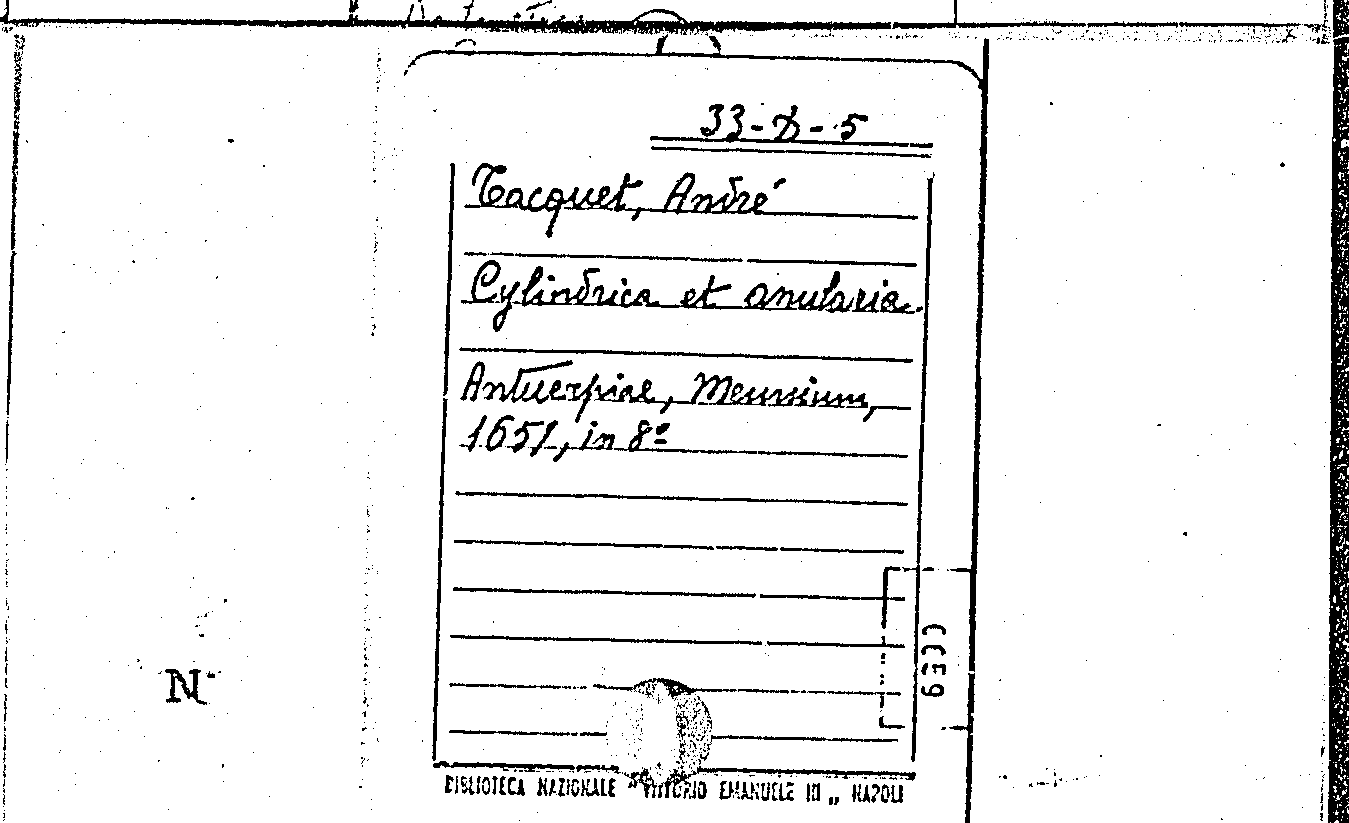 33-D-5
Tacquet, André
Cylindrica et anularia.
Antuerpiae, Meursium,
1651, in 8º
N
BIBLIOTECA NAZIONALE "VITTORIO EMANUELE III„ NAPOLI